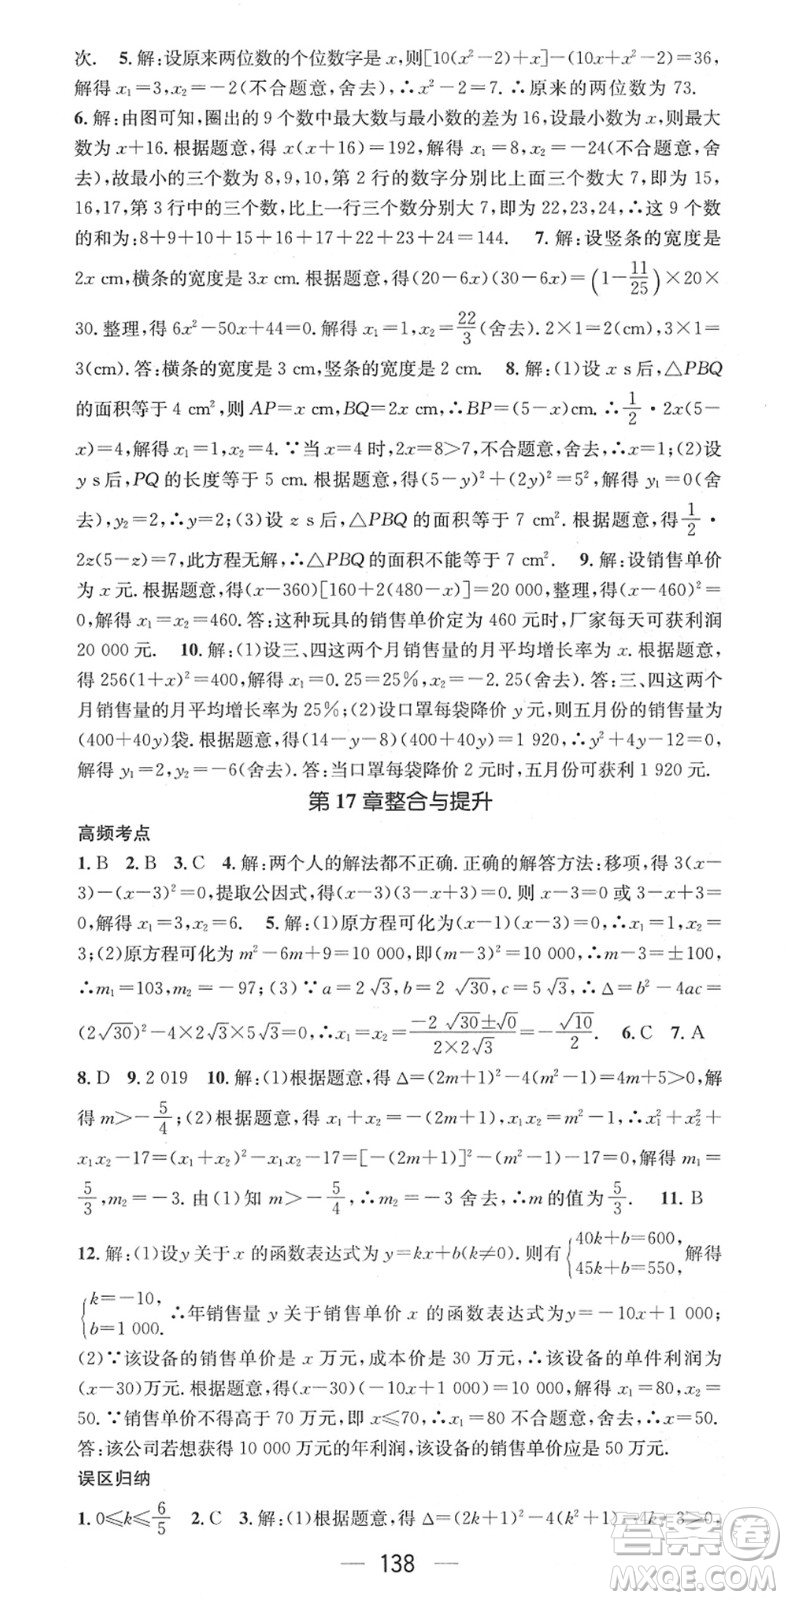 次. 5. 解:设原来两位数的个位数字是 x,则[10(x²-2)+x]-(10x+x²-2)=36,
解得 x₁=3,x₂=-2(不合题意,舍去),∴x²-2=7.∴原来的两位数为 73.
6. 解:由图可知,圈出的 9 个数中最大数与最小数的差为 16,设最小数为 x,则最大
数为 x+16. 根据题意,得 x(x+16)=192,解得 x₁=8,x₂=-24(不合题意,舍
去),故最小的三个数为 8,9,10,第 2 行的数字分别比上面三个数大 7,即为 15,
16,17,第 3 行中的三个数,比上一行三个数分别大 7,即为 22,23,24,∴这 9 个数
的和为:8+9+10+15+16+17+22+23+24=144. 7. 解:设竖条的宽度是
2x cm,横条的宽度是 3x cm. 根据题意,得(20-6x)(30-6x)=(1-11/25)×20×
30. 整理,得 6x²-50x+44=0. 解得 x₁=1,x₂=22/3(舍去). 2×1=2(cm),3×1=
3(cm). 答:横条的宽度是 3 cm,竖条的宽度是 2 cm. 8. 解:(1)设 x s后,△PBQ
的面积等于 4 cm²,则 AP=x cm,BQ=2x cm,∴BP=(5-x)cm.∴1/2·2x(5-
x)=4,解得 x₁=1,x₂=4.∵当 x=4 时,2x=8>7,不合题意,舍去,∴x=1;(2)设
y s后,PQ 的长度等于 5 cm. 根据题意,得(5-y)²+(2y)²=5²,解得 y₁=0(舍
去),y₂=2,∴y=2;(3)设 z s后,△PBQ 的面积等于 7 cm². 根据题意,得1/2·
2z(5-z)=7,此方程无解,∴△PBQ 的面积不能等于 7 cm². 9. 解:设销售单价
为 x 元. 根据题意,得(x-360)[160+2(480-x)]=20 000,整理,得(x-460)²=
0,解得 x₁=x₂=460. 答:这种玩具的销售单价定为 460 元时,厂家每天可获利润
20 000 元. 10. 解:(1)设三、四这两个月销售量的月平均增长率为 x. 根据题意,
得 256(1+x)²=400,解得 x₁=0.25=25%,x₂=-2.25(舍去). 答:三、四这两个
月销售量的月平均增长率为 25%;(2)设口罩每袋降价 y 元,则五月份的销售量为
(400+40y)袋. 根据题意,得(14-y-8)(400+40y)=1 920,∴y²+4y-12=0,
解得 y₁=2,y₂=-6(舍去). 答:当口罩每袋降价 2 元时,五月份可获利 1 920 元.
第 17 章整合与提升
高频考点
1. B 2. B 3. C 4. 解:两个人的解法都不正确. 正确的解答方法:移项,得 3(x-
3)-(x-3)²=0,提取公因式,得(x-3)(3-x+3)=0. 则 x-3=0 或 3-x+3=
0. 解得 x₁=3,x₂=6. 5. 解:(1)原方程可化为(x-1)(x-3)=0,∴x₁=1,x₂=
3;(2)原方程可化为 m²-6m+9=10 000,即(m-3)²=10 000,∴m-3=±100,
∴m₁=103,m₂=-97;(3)∵a=2√3,b=2√30,c=5√3,∴Δ=b²-4ac=
(2√30)²-4×2√3×5√3=0,∴x₁=x₂=(-2√30±√0)/(2×2√3)=-√10/2. 6. C 7. A
8. D 9. 2 019 10. 解:(1)根据题意,得 Δ=(2m+1)²-4(m²-1)=4m+5>0,解
得 m>-5/4;(2)根据题意,得 x₁+x₂=-(2m+1),x₁x₂=m²-1,∴x₁²+x₂²+
x₁x₂-17=(x₁+x₂)²-x₁x₂-17=[-(2m+1)]²-(m²-1)-17=0,解得 m₁=
5/3,m₂=-3. 由(1)知 m>-5/4,∴m₂=-3 舍去,∴m 的值为5/3. 11. B
12. 解:(1)设y关于 x 的函数表达式为 y=kx+b(k≠0). 则有{40k+b=600, 45k+b=550,解得
{k=-10, b=1 000.∴年销售量 y 关于销售单价 x 的函数表达式为y=-10x+1 000;
(2)∵该设备的销售单价是 x 万元,成本价是 30 万元,∴该设备的单件利润为
(x-30)万元. 根据题意,得(x-30)(-10x+1 000)=10 000,解得 x₁=80,x₂=
50.∵销售单价不得高于 70 万元,即 x≤70,∴x₁=80 不合题意,舍去,∴x=50.
答:该公司若想获得 10 000 万元的年利润,该设备的销售单价应是 50 万元.
误区归纳
1. 0≤k≤6/5 2. C 3. 解:(1)根据题意,得 Δ=(2k+1)²-4(k²+1)=4k-3>0,
— 138 —